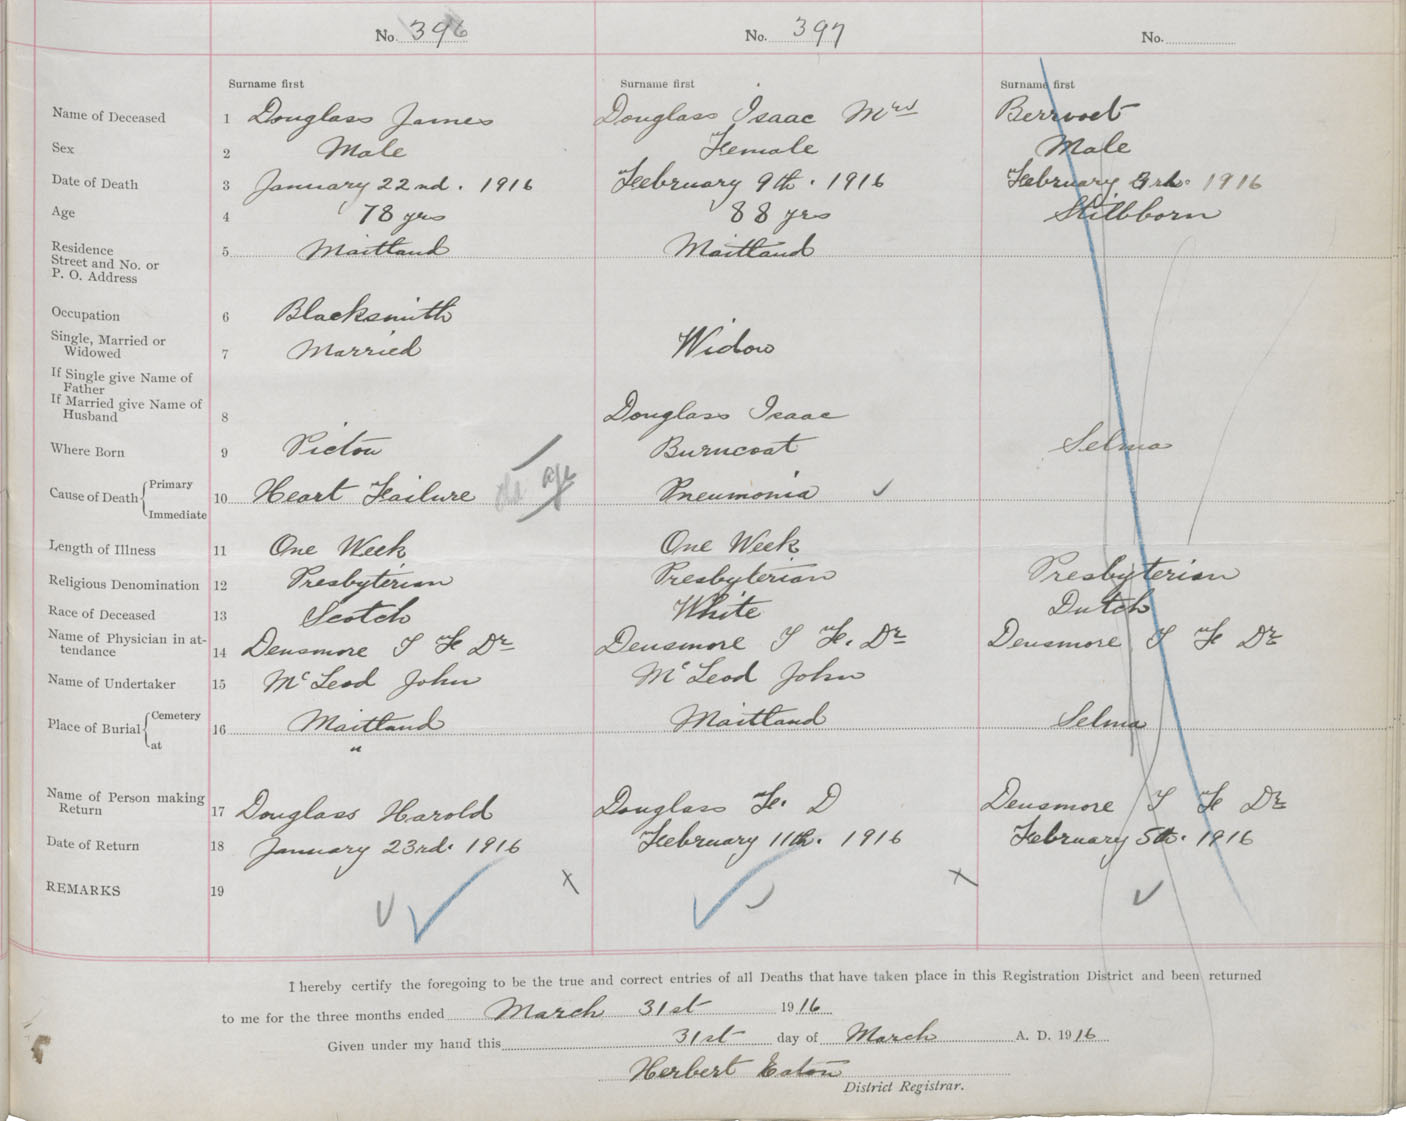 No. 396 No. 397 No.
Surname first Surname first Surname first
Name of Deceased 1 Douglass James Douglass Isaac Mrs Berrvoet
Sex 2 Male Female Male
Date of Death 3 January 22nd. 1916 February 9th. 1916 February 1916
Age 4 78 yrs 88 yrs Stillborn
Residence
Street and No. or
P. O. Address 5 Maitland Maitland
Occupation 6 Blacksmith
Single, Married or
Widowed 7 Married Widow
If Single give Name of
Father
If Married give Name of
Husband 8 Douglass Isaac
Where Born 9 Picton Burncoat Selma
Cause of Death { Primary
Immediate 10 Heart Failure old age Pneumonia
Length of Illness 11 One Week One Week
Religious Denomination 12 Presbyterian Presbyterian Presbyterian
Race of Deceased 13 Scotch White Dutch
Name of Physician in at-
tendance 14 Densmore I F Dr Densmore I F. Dr Densmore I F Dr
Name of Undertaker 15 McLeod John McLeod John
Place of Burial { Cemetery
at 16 Maitland Maitland Selma
"
Name of Person making
Return 17 Douglass Harold Douglass F. D Densmore I F Dr
Date of Return 18 January 23rd. 1916 February 11th. 1916 February 5th. 1916
REMARKS 19
I hereby certify the foregoing to be the true and correct entries of all Deaths that have taken place in this Registration District and been returned
to me for the three months ended March 31st 1916
Given under my hand this 31st day of March A. D. 1916
Herbert Eaton
District Registrar.